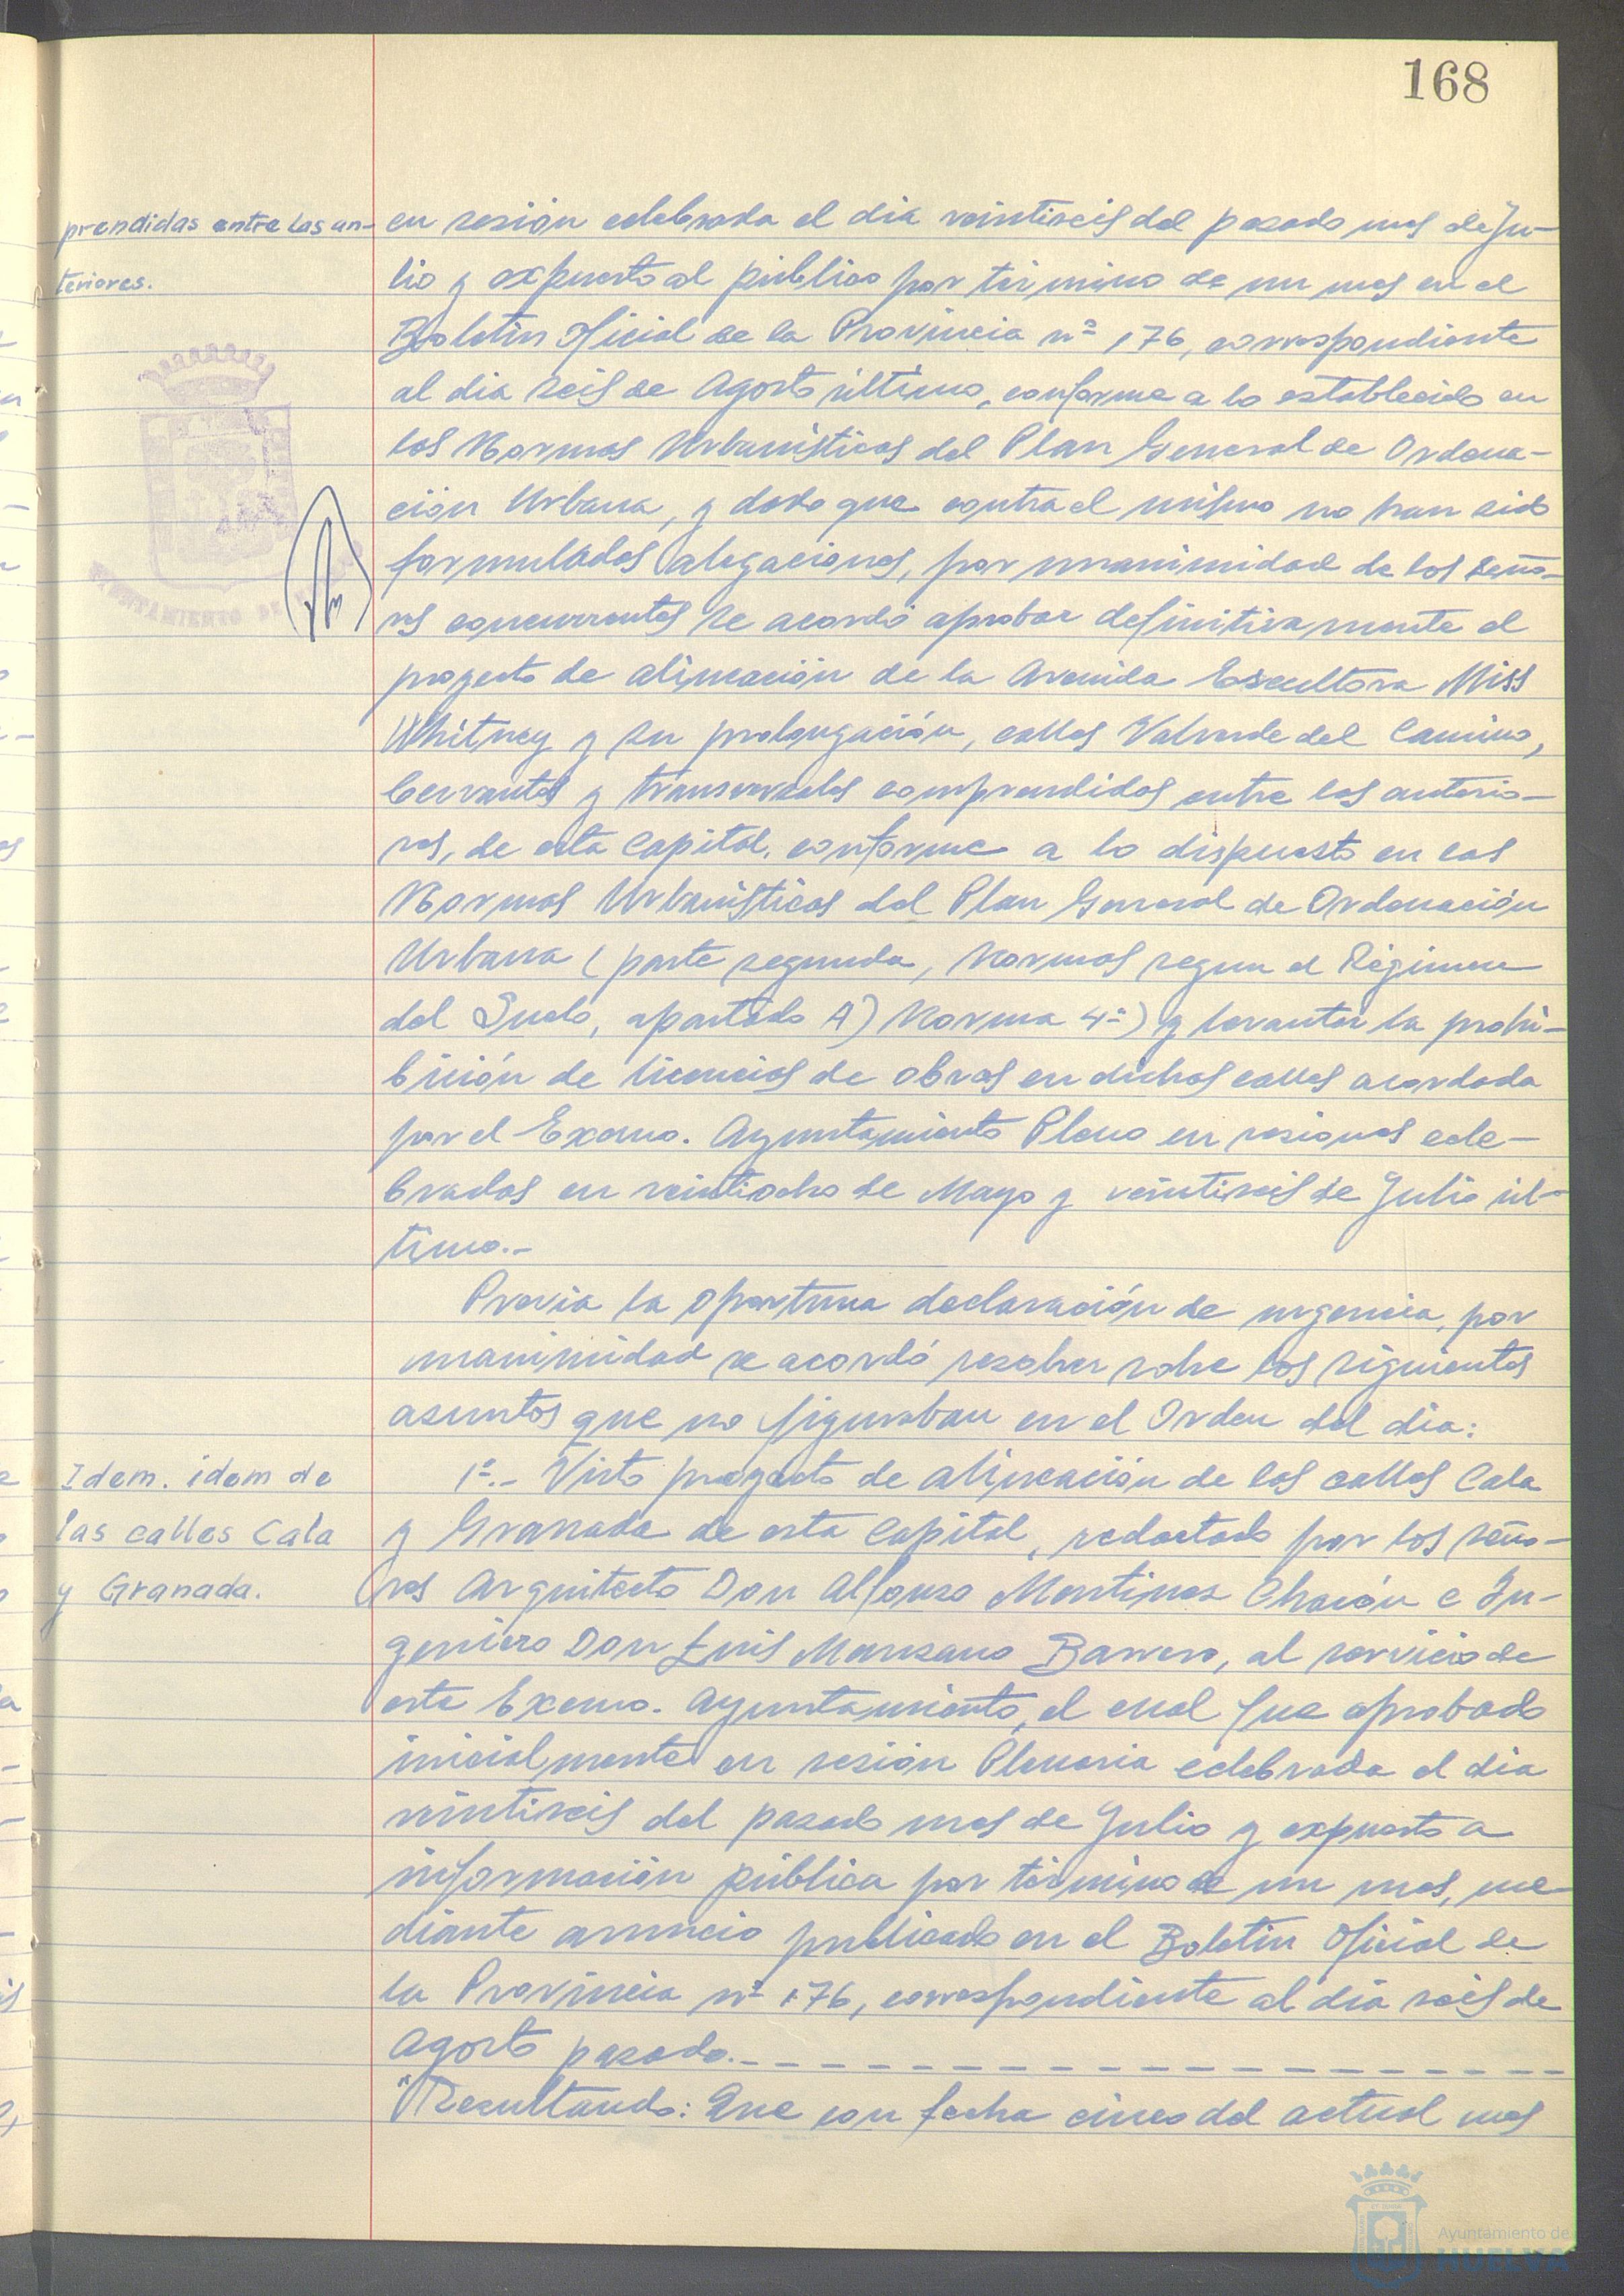 168
prendidas entre las an-
teriores.
en sesión celebrada el dia veintiseis del pasado mes de Ju-
lio y expuesto al público por término de un mes en el
Boletin Oficial de la Provincia nº 176, correspondiente
al dia seis de Agosto último, conforme a lo establecido en
las Normas Urbanísticas del Plan General de Ordena-
ción Urbana, y dado que contra el mismo no han sido
formuladas alegaciones, por unanimidad de los Seño-
res concurrentes se acordó aprobar definitivamente el
proyecto de alineación de la Avenida Escultora Miss
Whitney y su prolongación, calles Valverde del Camino,
Cervantes y transversales comprendidas entre las anterio-
res, de esta Capital, conforme a lo dispuesto en las
Normas Urbanísticas del Plan General de Ordenación
Urbana (parte segunda, Normas segun el Régimen
del Suelo, apartado A) Norma 4ª) y levantar la prohi-
bición de licencias de obras en dichas calles acordada
por el Excmo. Ayuntamiento Pleno en sesiones cele-
bradas en veintiocho de Mayo y veintiseis de Julio úl-
timo.-
Previa la oportuna declaración de urgencia, por
unanimidad se acordó resolver sobre los siguientes
asuntos que no figuraban en el Orden del dia:
Idem. idem de
las calles Cala
y Granada.
1º.- Visto proyecto de alineación de las calles Cala
y Granada de esta Capital, redactado por los Seño-
res Arquitecto Don Alfonso Martinez Chacón e In-
geniero Don Luis Manzano Barrero, al servicio de
este Excmo. Ayuntamiento, el cual fue aprobado
inicialmente en sesión Plenaria celebrada el dia
veintiseis del pasado mes de Julio y expuesto a
información pública por término de un mes, me
diante anuncio publicado en el Boletin Oficial de
la Provincia nº 176, correspondiente al dia seis de
Agosto pasado.
"Resultando: Que con fecha cinco del actual mes
AYUNTAMIENTO DE
Ayuntamiento de
HUELVA